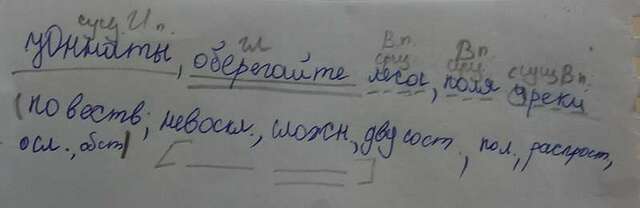 сущ. И.п. гл В.п. сущ В.п. сущ. сущ В.п.
юннаты, оберегайте леса, поля и реки
(повеств; невоскл., сложн, двусост, пол., распрост,
осл., обст)